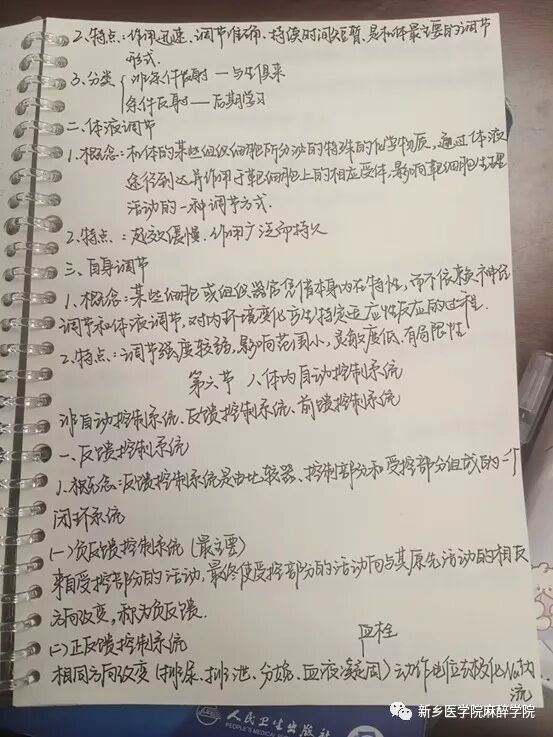 2.特点:作用迅速、调节准确、持续时间短暂,是机体最主要的调节
形式.
3.分类 { 非条件反射 — 与生俱来
条件反射 — 后期学习
二、体液调节
1.概念:机体的某些组织细胞所分泌的特殊的化学物质,通过体液
途径到达并作用于靶细胞上的相应受体,影响靶细胞生理
活动的一种调节方式.
2.特点:起效缓慢.作用广泛而持久
三、自身调节
1.概念:某些细胞或组织器官凭借本身内在特性,而不依赖神经
调节和体液调节,对内环境变化产生特定适应性反应的过程.
2.特点:调节强度较弱,影响范围小,灵敏度低.有局限性
第六节 人体内自动控制系统
非自动控制系统、反馈控制系统、前馈控制系统
一、反馈控制系统
1.概念:反馈控制系统是由比较器、控制部分和受控部分组成的一个
闭环系统
(一)负反馈控制系统(最主要)
来自受控部分的活动,最终使受控部分的活动向与其原先活动的相反
方向改变,称为负反馈.
(二)正反馈控制系统
血栓
相同方向改变(排尿、排泄、分娩、血液凝固)动作电位去极化Na⁺内
流
人民卫生出版社
PEOPLE'S MEDICAL
新乡医学院麻醉学院